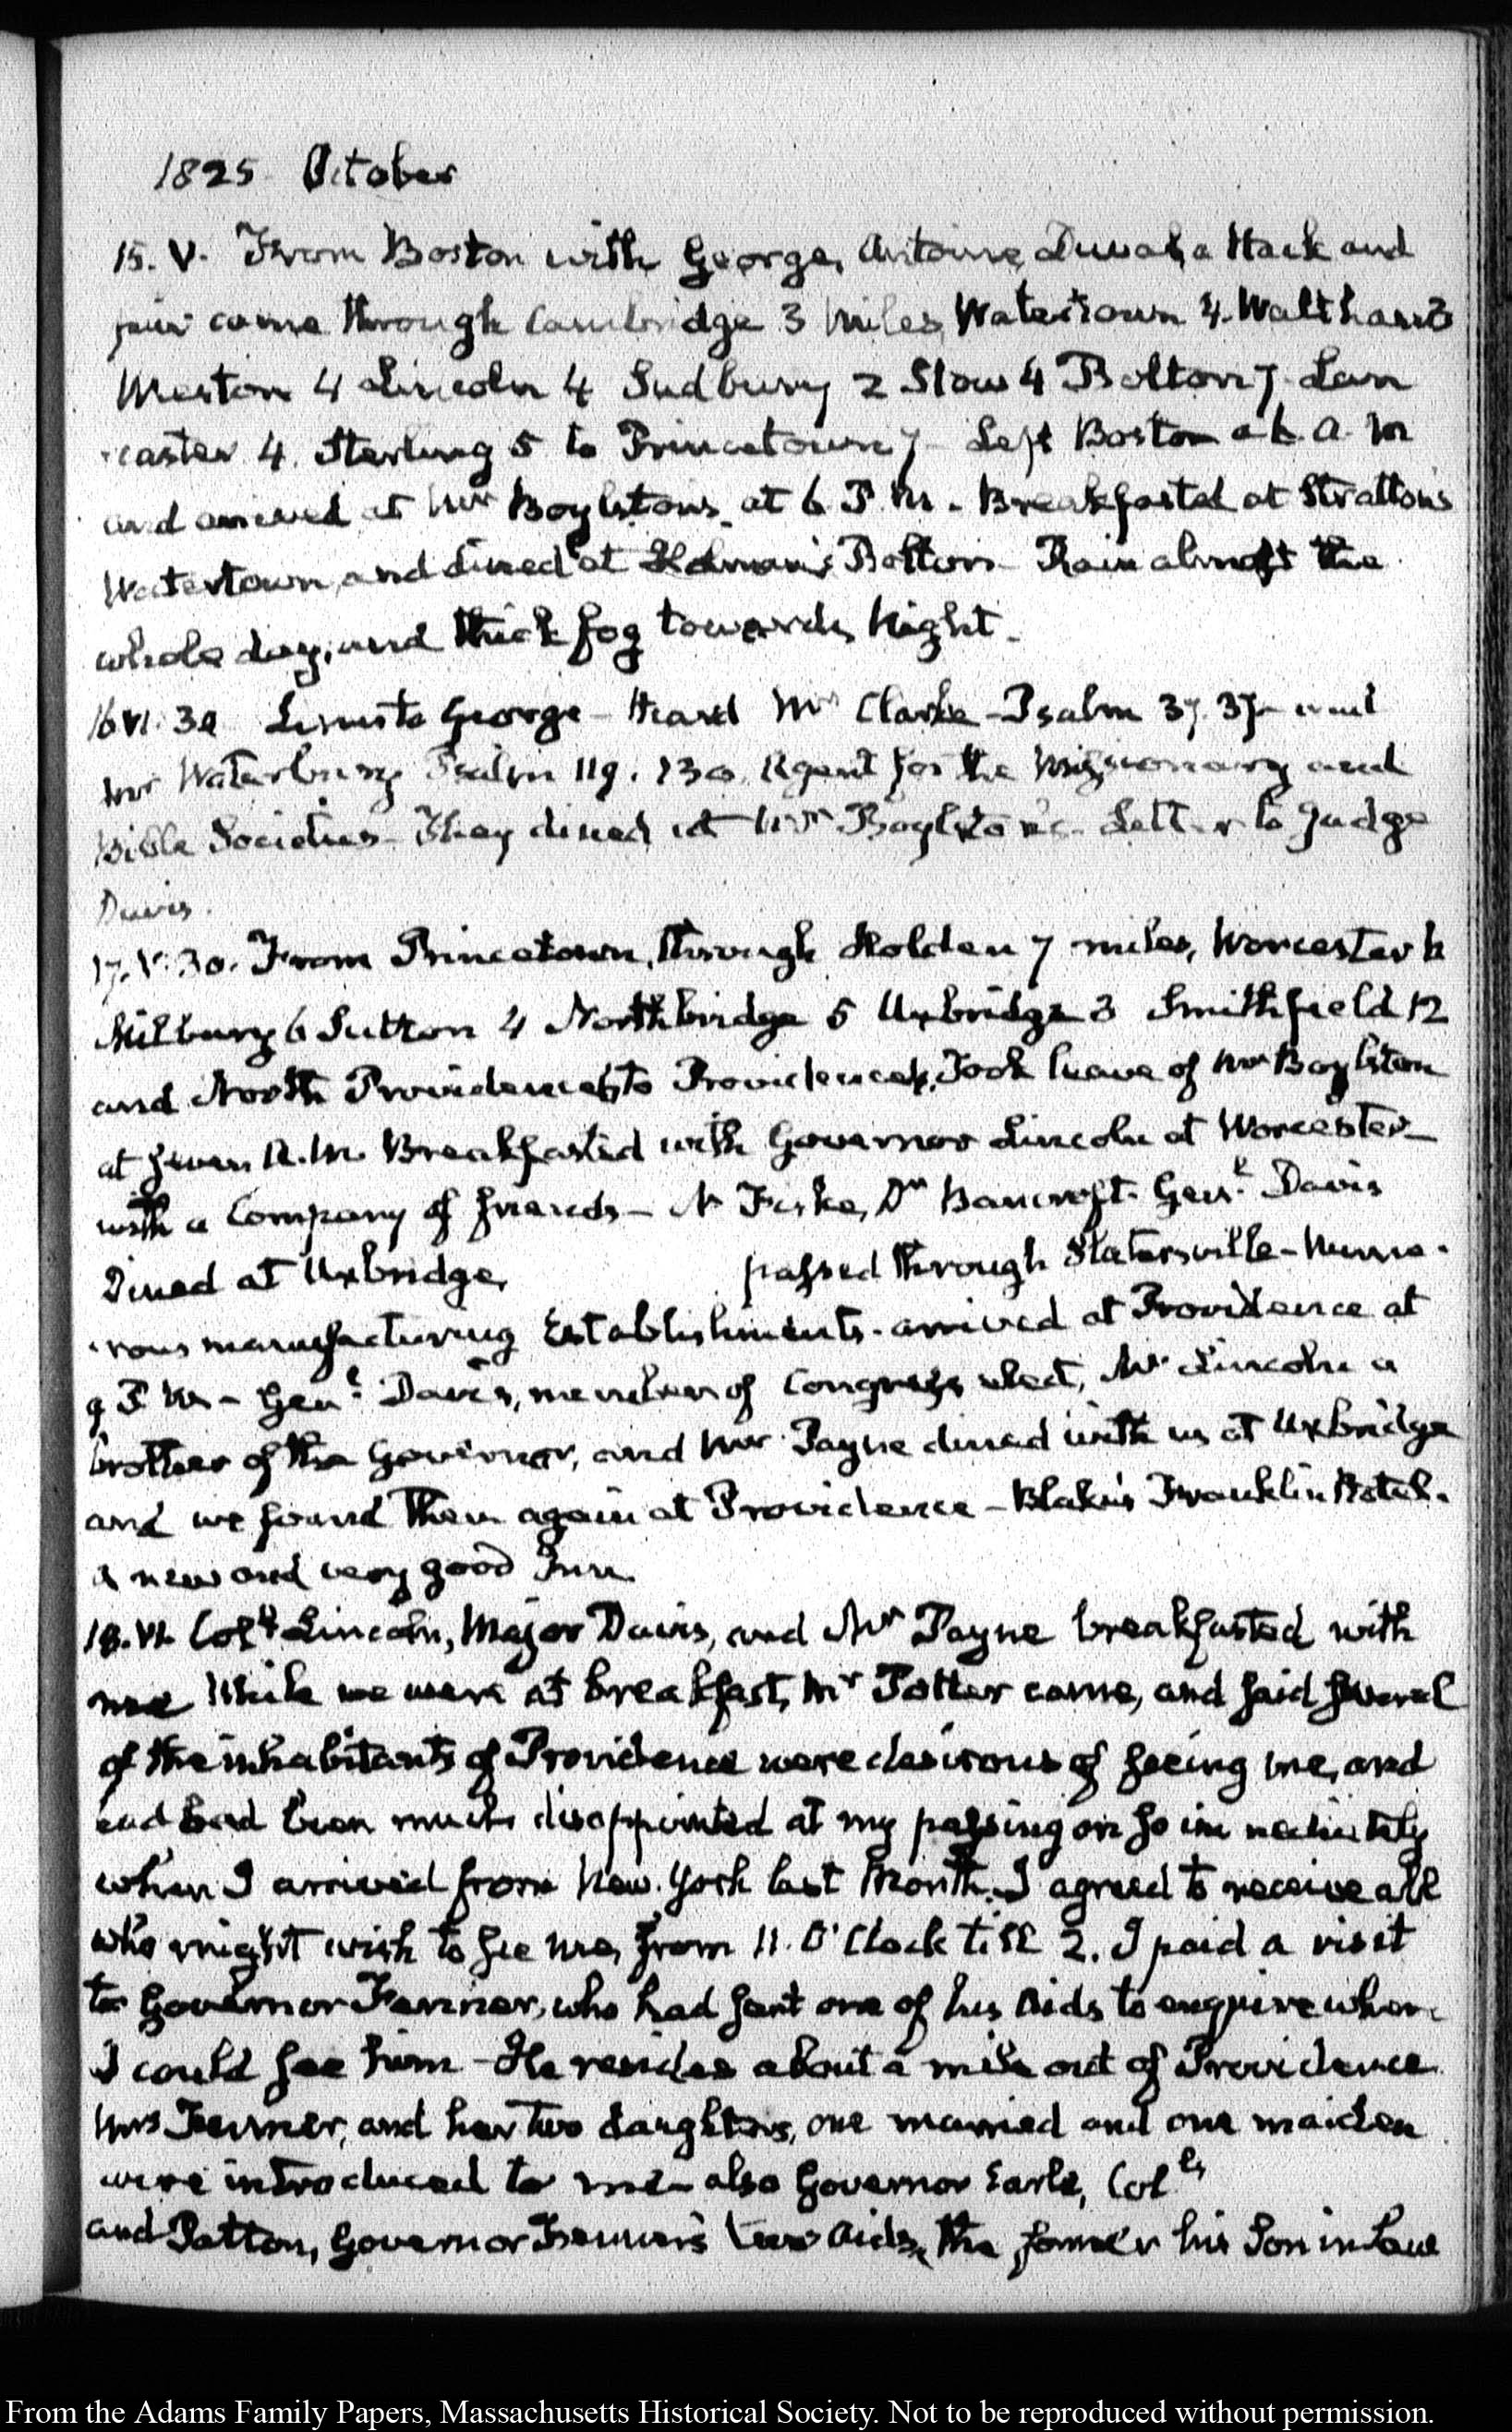 1825 October
15. V. From Boston with George, Antoine, a Hack and
pair came through Cambridge 3 miles, Watertown 4. Waltham 3
Weston 4 Lincoln 4 Sudbury 2 Stow 4 Bolton 7 Lan
caster 4. Sterling 5 to Princetown 7 - Left Boston at A. M
and arrived at Mr Boylston's at 6 P. M. - Breakfasted at Stratton's
Watertown, and dined at Holman's Bolton - Rain almost the
whole day, and thick fog towards Night -
16 VI. 30 George - Heard Mr Clarke - Psalm 37. 37 - and
Mr Waterbury Psalm 119. 130. Agent for the Missionary and
Bible Societies - They dined at Mr Boylston's - Letter to Judge
Davis.
17. V. 30. From Princetown, through Holden 7 miles, Worcester 6
Milbury 6 Sutton 4 Northbridge 5 Uxbridge 3 Smithfield 12
and North Providence to Providence. Took leave of Mr Boylston
at seven A. M. Breakfasted with Governor Lincoln at Worcester -
with a Company of friends - Fiske, Dr Bancroft - Genl. Davis
Dined at Uxbridge, passed through Slatersville - Nume-
rous manufacturing Establishments - arrived at Providence at
P M - Genl. Davis, member of Congress elect, Mr Lincoln a
brother of the Governor, and Mr Payne dined with us at Uxbridge
and we found them again at Providence - Blake's Franklin Hotel.
a new and very good Inn.
18. VI. Coll. Lincoln, Major Davis, and Mr Payne breakfasted with
me While we were at breakfast, Mr Potter came, and said several
of the inhabitants of Providence were desirous of seeing me, and
and had been much disappointed at my passing on so immediately
when I arrived from New-York last Month. I agreed to receive all
who might wish to see me, from 11. O'Clock till 2. I paid a visit
to Governor Fenner, who had sent one of his Aids to enquire when
I could see him - He resides about a mile out of Providence
Mrs Fenner, and her two daughters, one married and one maiden
were introduced to me - also Governor Earle, Cols
and Patton, Governor Fenner's two Aids, the former his Son in Law